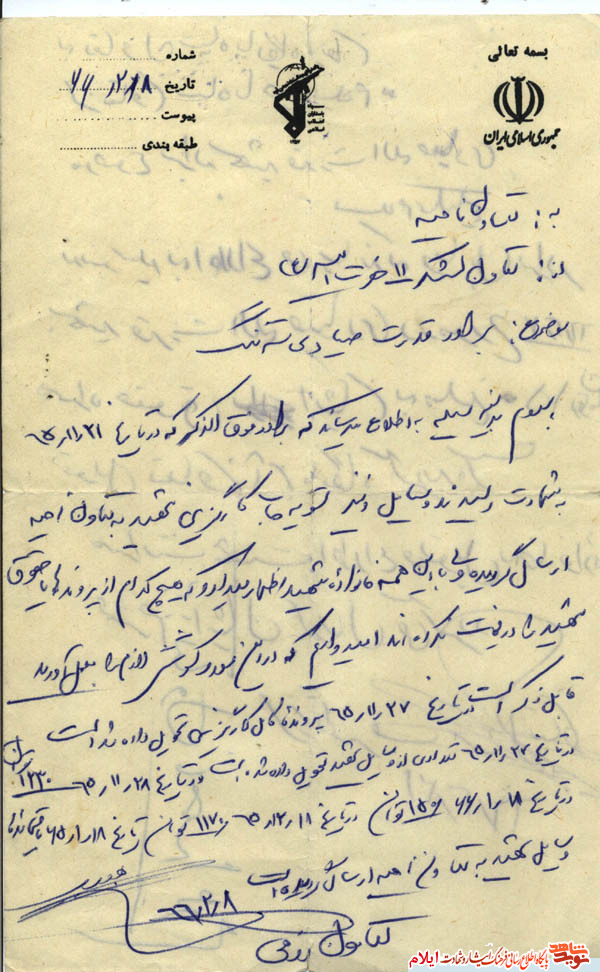 بسمه تعالی
جمهوری اسلامی ایران
شماره
تاریخ ۶۶/۲/۸
پیوست
طبقه بندی
به: تعاون ناحیه
از: تعاون لشکر ۱۱ حضرت امیر (ع)
موضوع: برادر قدرت صیادی
سلام بدینوسیله به اطلاع میرساند که برادر فوق الذکر که در تاریخ ۶۵/۱۱/۲۱
به شهادت رسیدند وسایل و نیز تسویه حساب کارگزینی شهید به تعاون ناحیه
ارسال گردیده ولی با این همه خانواده شهید اظهار میدارد که هیچ کدام از پرونده ها یا حقوق
شهید را دریافت نکرده اند امیدواریم که در این مورد کوشش لازم را بعمل آورند
قابل ذکر است در تاریخ ۶۵/۱۱/۲۷ پرونده کامل کارگزینی تحویل داده شد است
در تاریخ ۶۵/۱۱/۲۷ تعدادی از وسایل شهید تحویل داده شد و در تاریخ ۶۵/۱۱/۲۸ ۱۲۳۰
در تاریخ ۶۶/۱/۱۸ تومان در تاریخ ۶۵/۱۲/۱۸ ۱۱۷۰ تومان تاریخ
وسایل شهید به تعاون ناحیه ارسال گردیده است
۶۶/۲/۸
تعاون رزمی
نوید شاهد پایگاه اطلاع رسانی فرهنگ ایثار و شهادت ایلام